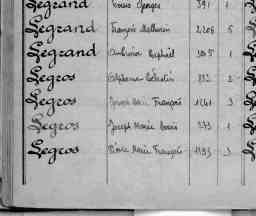 Legrand Louis Georges 391 1
Legrand François Mathurin 2206 5
Legrand Ambroise Raphaël 1
Legros Célestin 2
Legros Joseph Marie François 1241 3
Legros Joseph Marie Louis 1
Legros Pierre Marie François 1193 3